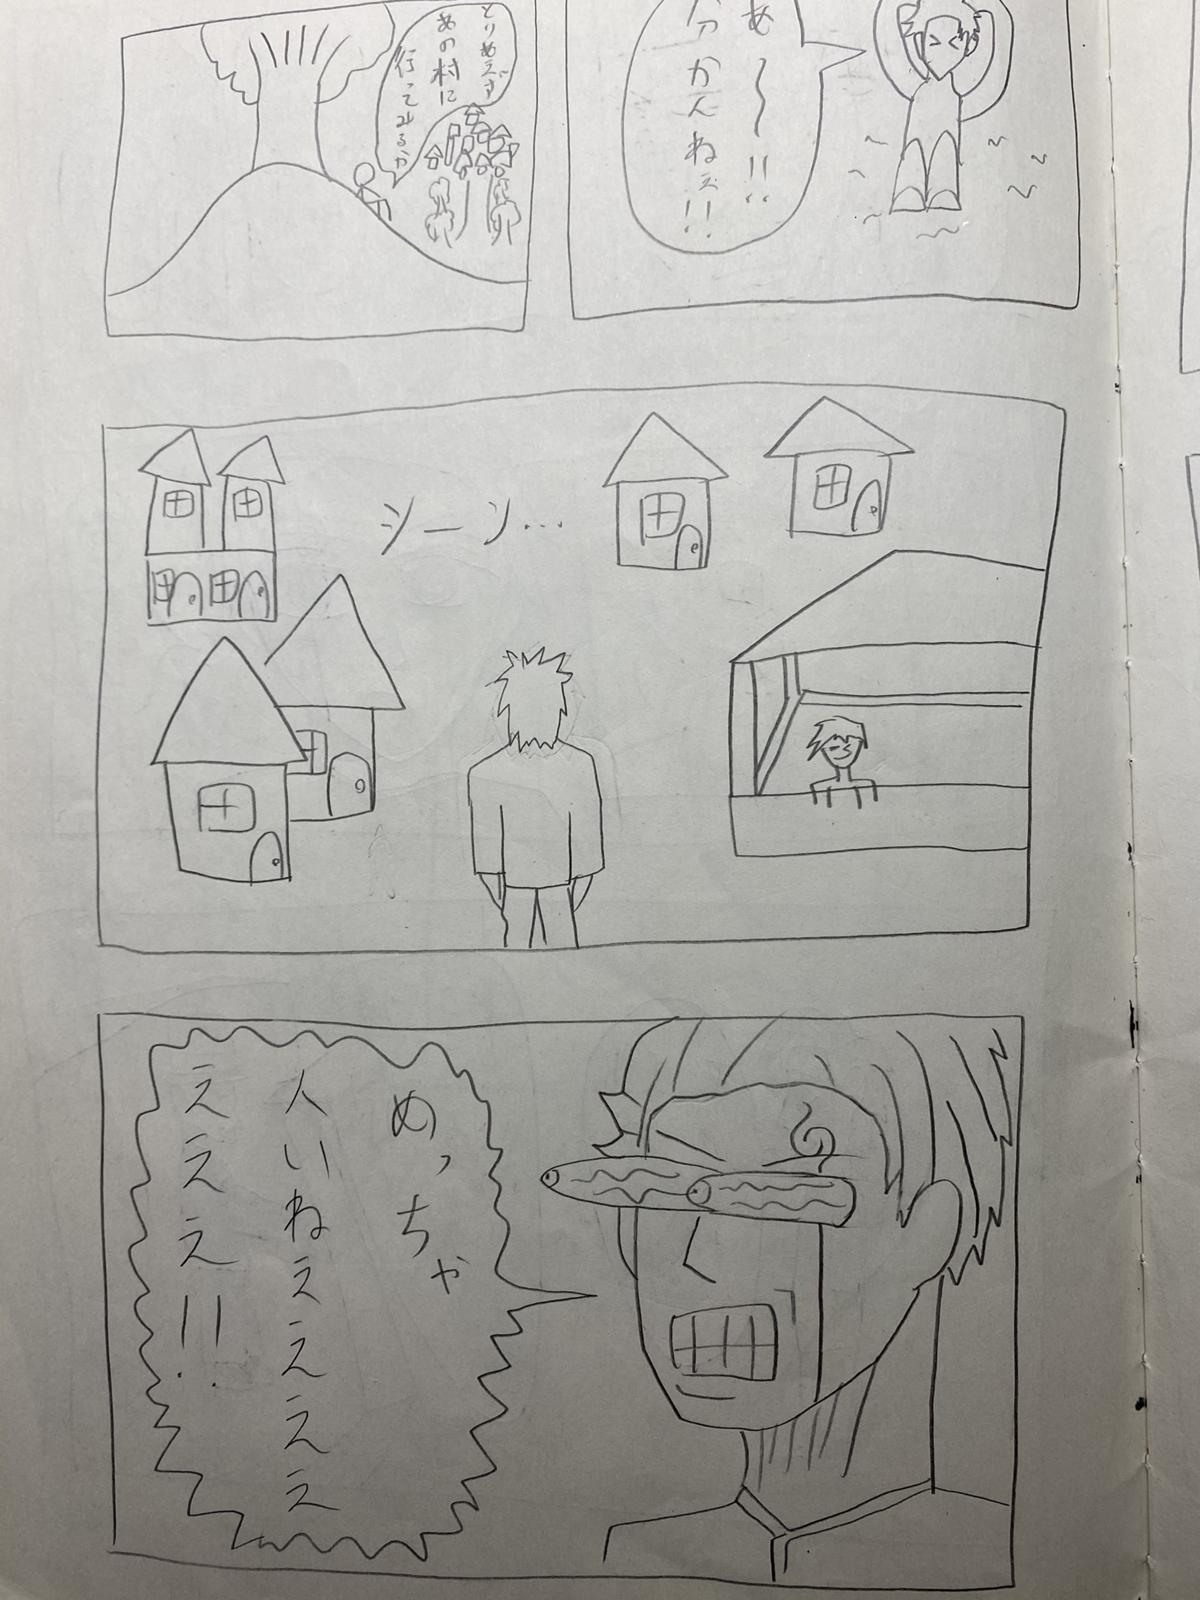 あ〜〜!!
分かんねぇ!!
とりあえず
あの村に
行ってみるか
シーン…
めっちゃ
人いねぇぇぇぇ
ぇぇぇ!!